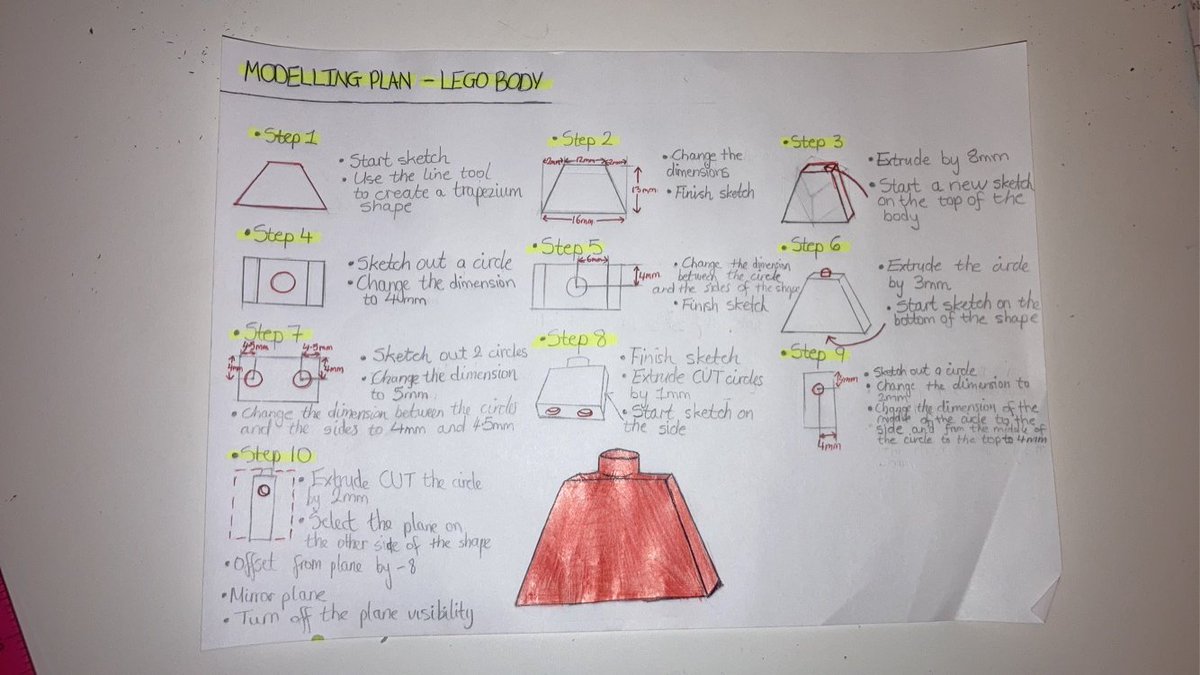 MODELLING PLAN - LEGO BODY
• Step 1
• Start sketch
• Use the line tool
to create a trapezium
shape
• Step 2
2mm 12mm 2mm
13mm
16mm
• Change the
dimensions
• Finish sketch
• Step 3
• Extrude by 8mm
• Start a new sketch
on the top of the
body
• Step 4
• Sketch out a circle
• Change the dimension
to 4mm
• Step 5
6mm
4mm
• Change the dimension
between the circle
and the sides of the shape
• Finish sketch
• Step 6
• Extrude the circle
by 3mm
• Start sketch on the
bottom of the shape
• Step 7
4.5mm 4.5mm
4mm 4mm
• Sketch out 2 circles
• Change the dimension
to 5mm
• Change the dimension between the circles
and the sides to 4mm and 4.5mm
• Step 8
• Finish sketch
• Extrude CUT circles
by 1mm
• Start sketch on
the side
• Step 9
4mm
• Sketch out a circle
• Change the dimension to
2mm
• Change the dimension of the
middle of the circle to the
side and from the middle of
the circle to the top to 4mm
• Step 10
• Extrude CUT the circle
by 2mm
• Select the plane on
the other side of the shape
• Offset from plane by -8
• Mirror plane
• Turn off the plane visibility